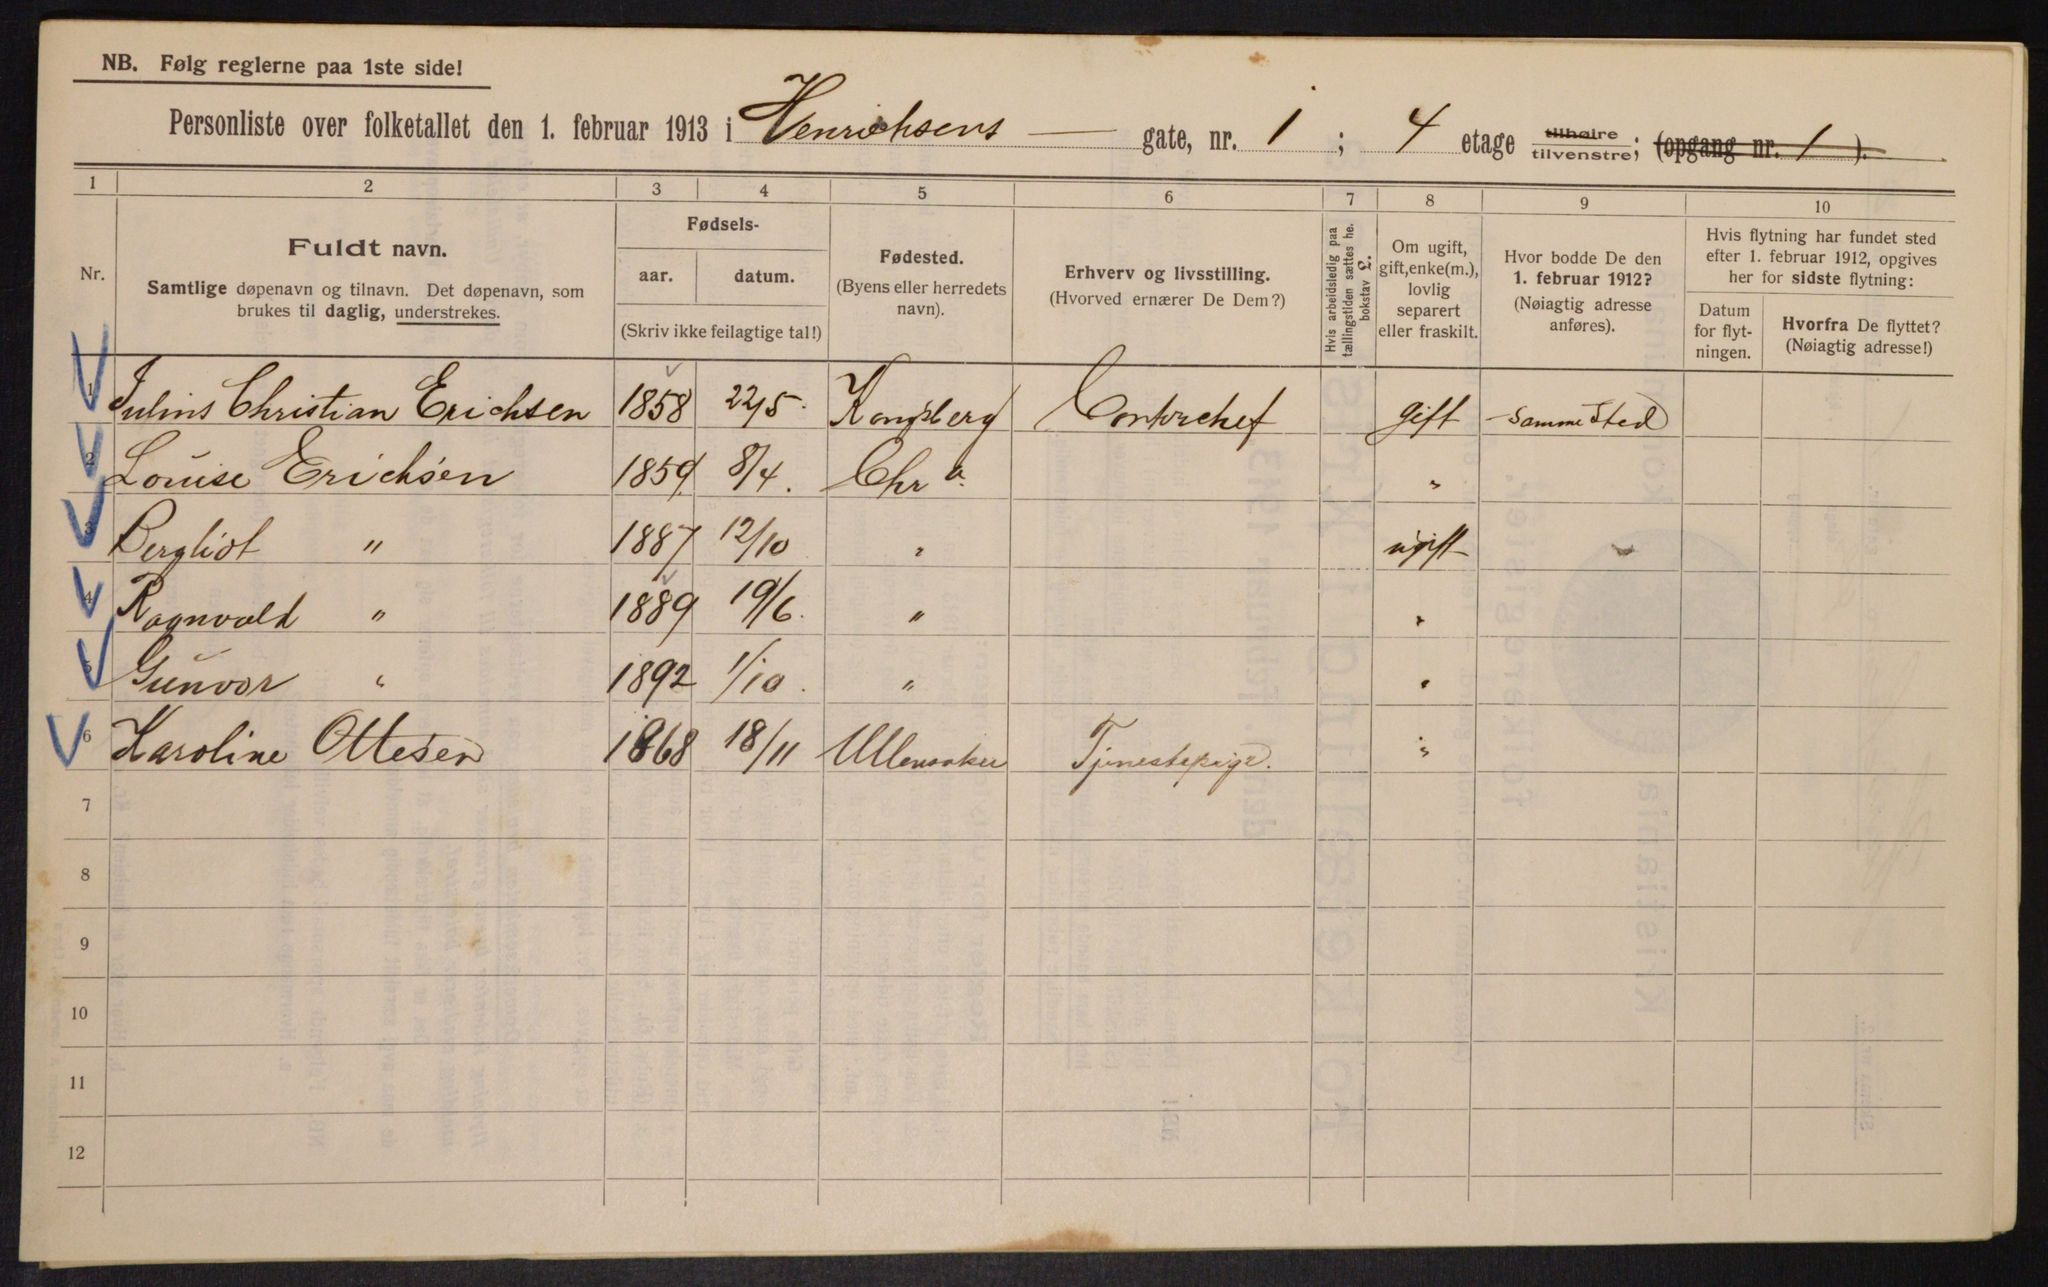 NB. Følg reglerne paa 1ste side!
Personliste over folketallet den 1. februar 1913 i Henrichsens — gate, nr. 1 ; 4 etage tilhøire tilvenstre; (opgang nr. 1 ).
1 2 3 4 5 6 7 8 9 10
Nr.
Fuldt navn.
Samtlige døpenavn og tilnavn. Det døpenavn, som
brukes til daglig, understrekes.
Fødsels-
aar. datum.
(Skriv ikke feilagtige tal!)
Fødested.
(Byens eller herredets
navn).
Erhverv og livsstilling.
(Hvorved ernærer De Dem?)
Hvis arbeidsledig paa
tællingstiden sættes he.
bokstav L.
Om ugift,
gift, enke(m.),
lovlig
separert
eller fraskilt.
Hvor bodde De den
1. februar 1912?
(Nøiagtig adresse
anføres).
Hvis flytning har fundet sted
efter 1. februar 1912, opgives
her for sidste flytning:
Datum
for flyt-
ningen.
Hvorfra De flyttet?
(Nøiagtig adresse!)
1 Julius Christian Erichsen 1858 22/5 Kongsberg Contorchef gift samme sted
2 Louise Erichsen 1859 8/4. Chr a. "
3 Bergliot " 1887 12/10 " ugift "
4 Ragnvald " 1889 19/6. " "
5 Gunvor " 1892 1/10. " "
6 Karoline Ottesen 1868 18/11 Ullensaker Tjenestepige. "
7
8
9
10
11
12